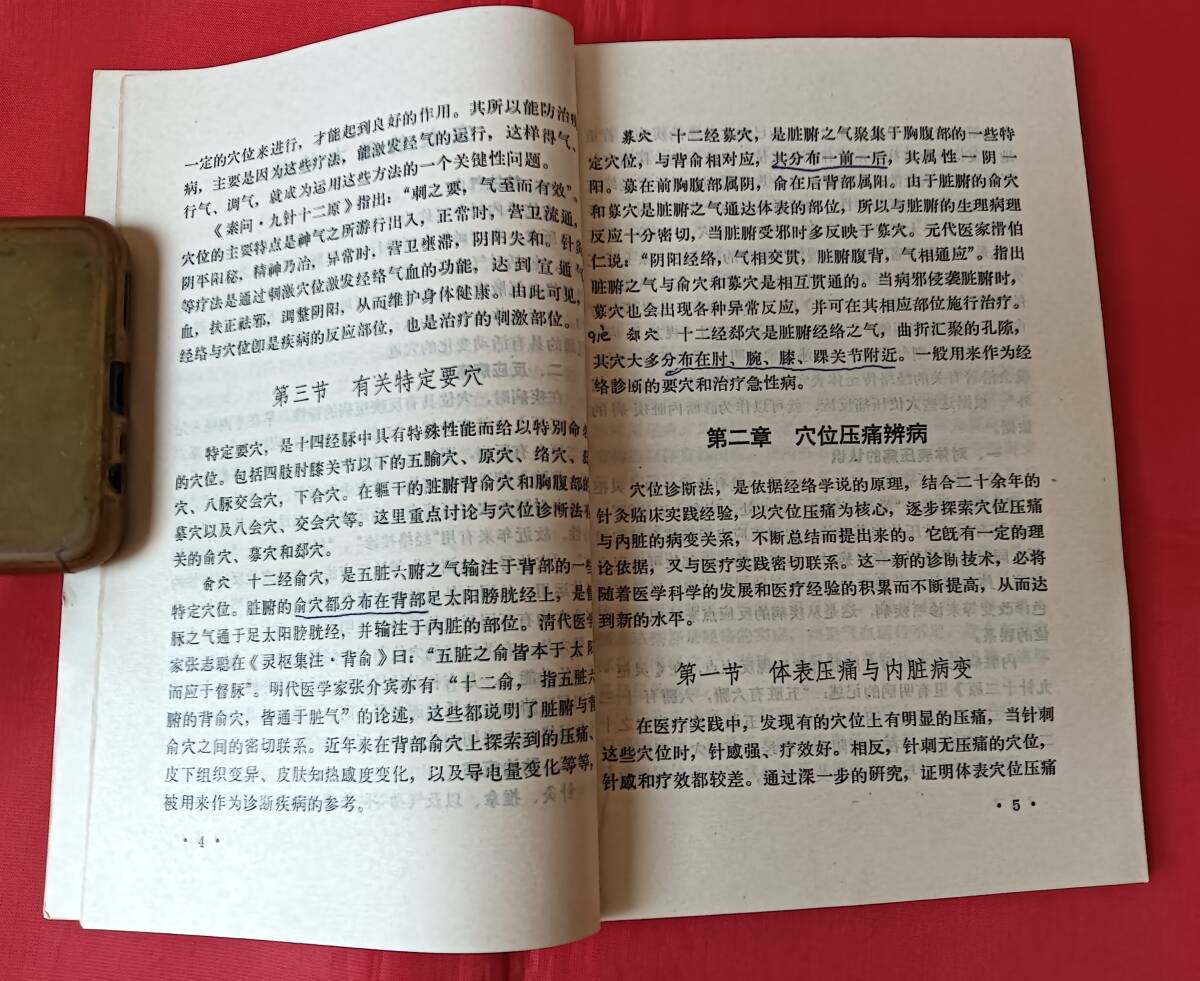 一定的穴位来进行，才能起到良好的作用。其所以能防治疾
病，主要是因为这些疗法，能激发经气的运行，这样得气、
行气、调气，就成为运用这些方法的一个关键性问题。
《素问·九针十二原》指出：“刺之要，气至而有效”。
穴位的主要特点是神气之所游行出入，正常时，营卫流通，
阴平阳秘，精神乃治，异常时，营卫壅滞，阴阳失和。针灸
等疗法是通过刺激穴位激发经络气血的功能，达到宣通气
血，扶正祛邪，调整阴阳，从而维护身体健康。由此可见，
经络与穴位即是疾病的反应部位，也是治疗的刺激部位。
第三节 有关特定要穴
特定要穴，是十四经脉中具有特殊性能而给以特别命名
的穴位。包括四肢肘膝关节以下的五腧穴、原穴、络穴、
穴、八脉交会穴，下合穴。在躯干的脏腑背俞穴和胸腹部的
募穴以及八会穴、交会穴等。这里重点讨论与穴位诊断法有
关的俞穴、募穴和郄穴。
俞穴 十二经俞穴，是五脏六腑之气输注于背部的一些
特定穴位。脏腑的俞穴都分布在背部足太阳膀胱经上，是
脉之气通于足太阳膀胱经，并输注于内脏的部位。清代医学
家张志聪在《灵枢集注·背俞》曰：“五脏之俞皆本于太阳
而应于督脉”。明代医学家张介宾亦有“十二俞，指五脏六
腑的背俞穴，皆通于脏气”的论述，这些都说明了脏腑与背
俞穴之间的密切联系。近年来在背部俞穴上探索到的压痛、
皮下组织变异、皮肤知热感度变化，以及导电量变化等等，
被用来作为诊断疾病的参考。
· 4 ·
募穴 十二经募穴，是脏腑之气聚集于胸腹部的一些特
定穴位，与背俞相对应，其分布一前一后，其属性一阴一
阳。募在前胸腹部属阴，俞在后背部属阳。由于脏腑的俞穴
和募穴是脏腑之气通达体表的部位，所以与脏腑的生理病理
反应十分密切，当脏腑受邪时多反映于募穴。元代医家滑伯
仁说：“阴阳经络，气相交贯，脏腑腹背，气相通应”。指出
脏腑之气与俞穴和募穴是相互贯通的。当病邪侵袭脏腑时，
募穴也会出现各种异常反应，并可在其相应部位施行治疗。
郄穴 十二经郄穴是脏腑经络之气，曲折汇聚的孔隙，
其穴大多分布在肘、腕、膝、踝关节附近。一般用来作为经
络诊断的要穴和治疗急性病。
第二章 穴位压痛辨病
穴位诊断法，是依据经络学说的原理，结合二十余年的
针灸临床实践经验，以穴位压痛为核心，逐步探索穴位压痛
与内脏的病变关系，不断总结而提出来的。它既有一定的理
论依据，又与医疗实践密切联系。这一新的诊断技术，必将
随着医学科学的发展和医疗经验的积累而不断提高，从而达
到新的水平。
第一节 体表压痛与内脏病变
在医疗实践中，发现有的穴位上有明显的压痛，当针刺
这些穴位时，针感强、疗效好。相反，针刺无压痛的穴位，
针感和疗效都较差。通过深一步的研究，证明体表穴位压痛
· 5 ·